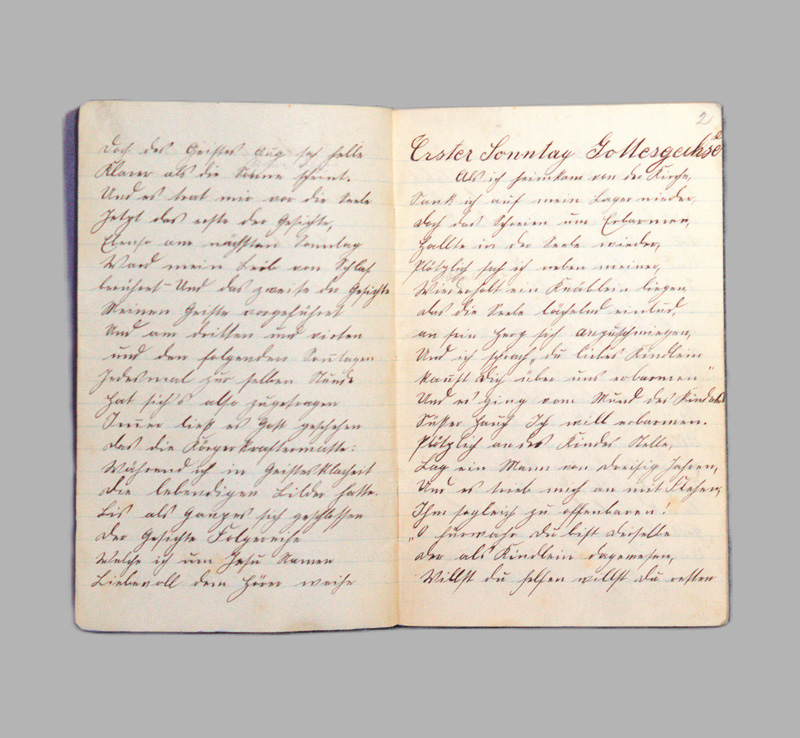 Doch des Geistes Aug sah helle
Klarer als die Sonne scheint.
Und es trat mir vor die Seele
Jetzt das erste der Gesichte,
Ebenso am nächsten Sonntag
Ward mein Leib von Schlaf
berühret Und das zweite der Gesichte
Meinem Geiste vorgeführet
Und am dritten und vierten
und den folgenden Sonntagen
Jedesmal zur selben Stunde
Hat sich's also zugetragen
Immer ließ es Gott geschehen
Das die Körperkraft ermatte:
Während ich in Geistesklarheit
Die lebendigen Bilder hatte.
Bis als Ganzes sich geschlossen
Der Gesichte Folgereihe
Welche ich um Jesu Namen
Liebevoll dem Hörer weihe
2
Erster Sonntag Gottesgeheise
Als ich heimkam von der Kirche,
Sank ich auf mein Lager nieder,
Doch das Schreien um Erbarmen,
Hallte in der Seele wieder,
Plötzlich sah ich neben meiner,
Wiederholt ein Knäblein liegen
Das die Seele lächelnd einlud,
an sein Herz sich anzuschmiegen,
Und ich sprach, du liebes Kindlein
kannst Dich über uns erbarmen"
Und es ging vom Mund des Kindes
Süßer Hauch Ich will erbarmen.
Plötzlich an des Kindes Stelle,
Lag ein Mann von dreißig Jahren,
Und es trieb mich an mit Flehen,
Ihm sogleich zu offenbaren:
"O fürwahr du bist derselbe
Der als Kindlein dagewesen,
Willst du helfen willst du retten